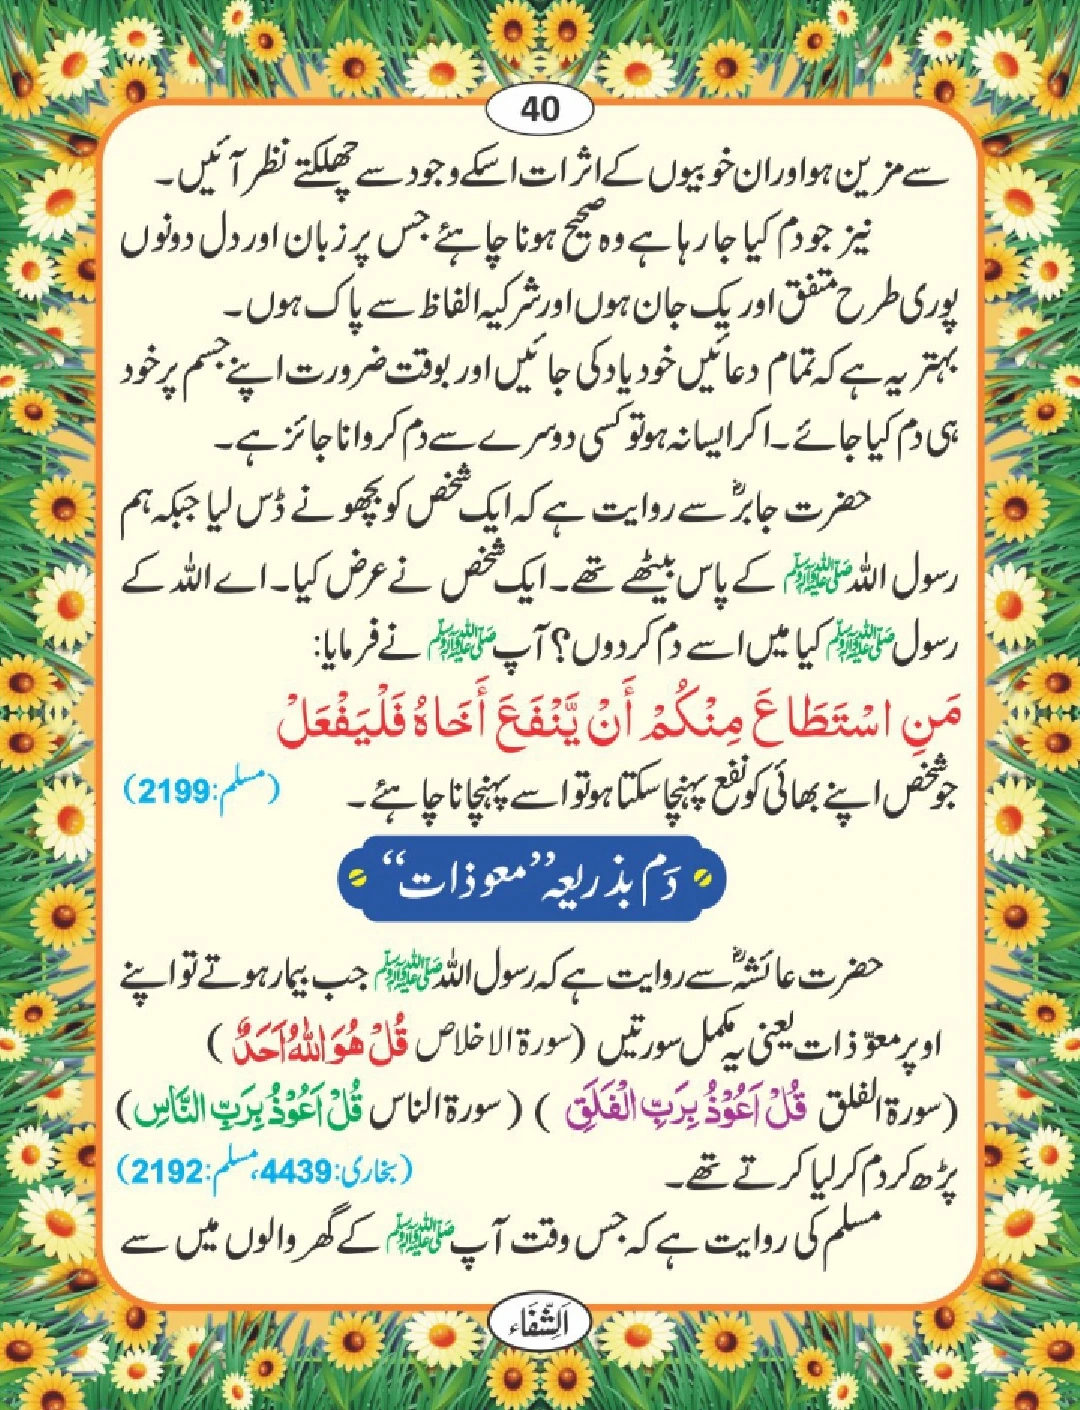 40
سے مزین ہو اور ان خوبیوں کے اثرات اسکے وجود سے چھلکتے نظر آئیں۔
نیز جو دم کیا جا رہا ہے وہ صحیح ہونا چاہئے جس پر زبان اور دل دونوں
پوری طرح متفق اور یک جان ہوں اور شرکیہ الفاظ سے پاک ہوں۔
بہتر یہ ہے کہ تمام دعائیں خود یاد کی جائیں اور بوقت ضرورت اپنے جسم پر خود
ہی دم کیا جائے۔ اگر ایسا نہ ہو تو کسی دوسرے سے دم کروانا جائز ہے۔
حضرت جابرؓ سے روایت ہے کہ ایک شخص کو بچھو نے ڈس لیا جبکہ ہم
رسول اللہ ﷺ کے پاس بیٹھے تھے۔ ایک شخص نے عرض کیا۔ اے اللہ کے
رسول ﷺ کیا میں اسے دم کر دوں؟ آپ ﷺ نے فرمایا:
مَنِ اسْتَطَاعَ مِنْكُمْ أَنْ يَّنْفَعَ أَخَاهُ فَلْيَفْعَلْ
جو شخص اپنے بھائی کو نفع پہنچا سکتا ہو تو اسے پہنچانا چاہئے۔ (مسلم:2199)
دَم بذریعہ ”معوذات“
حضرت عائشہؓ سے روایت ہے کہ رسول اللہ ﷺ جب بیمار ہوتے تو اپنے
اوپر معوّذات یعنی یہ مکمل سورتیں (سورۃ الاخلاص قُلْ هُوَ اللّٰهُ اَحَدٌ)
(سورۃ الفلق قُلْ اَعُوْذُ بِرَبِّ الْفَلَقِ) (سورۃ الناس قُلْ اَعُوْذُ بِرَبِّ النَّاسِ)
پڑھ کر دم کر لیا کرتے تھے۔ (بخاری:4439، مسلم:2192)
مسلم کی روایت ہے کہ جس وقت آپ ﷺ کے گھر والوں میں سے
اَلشِّفَاء